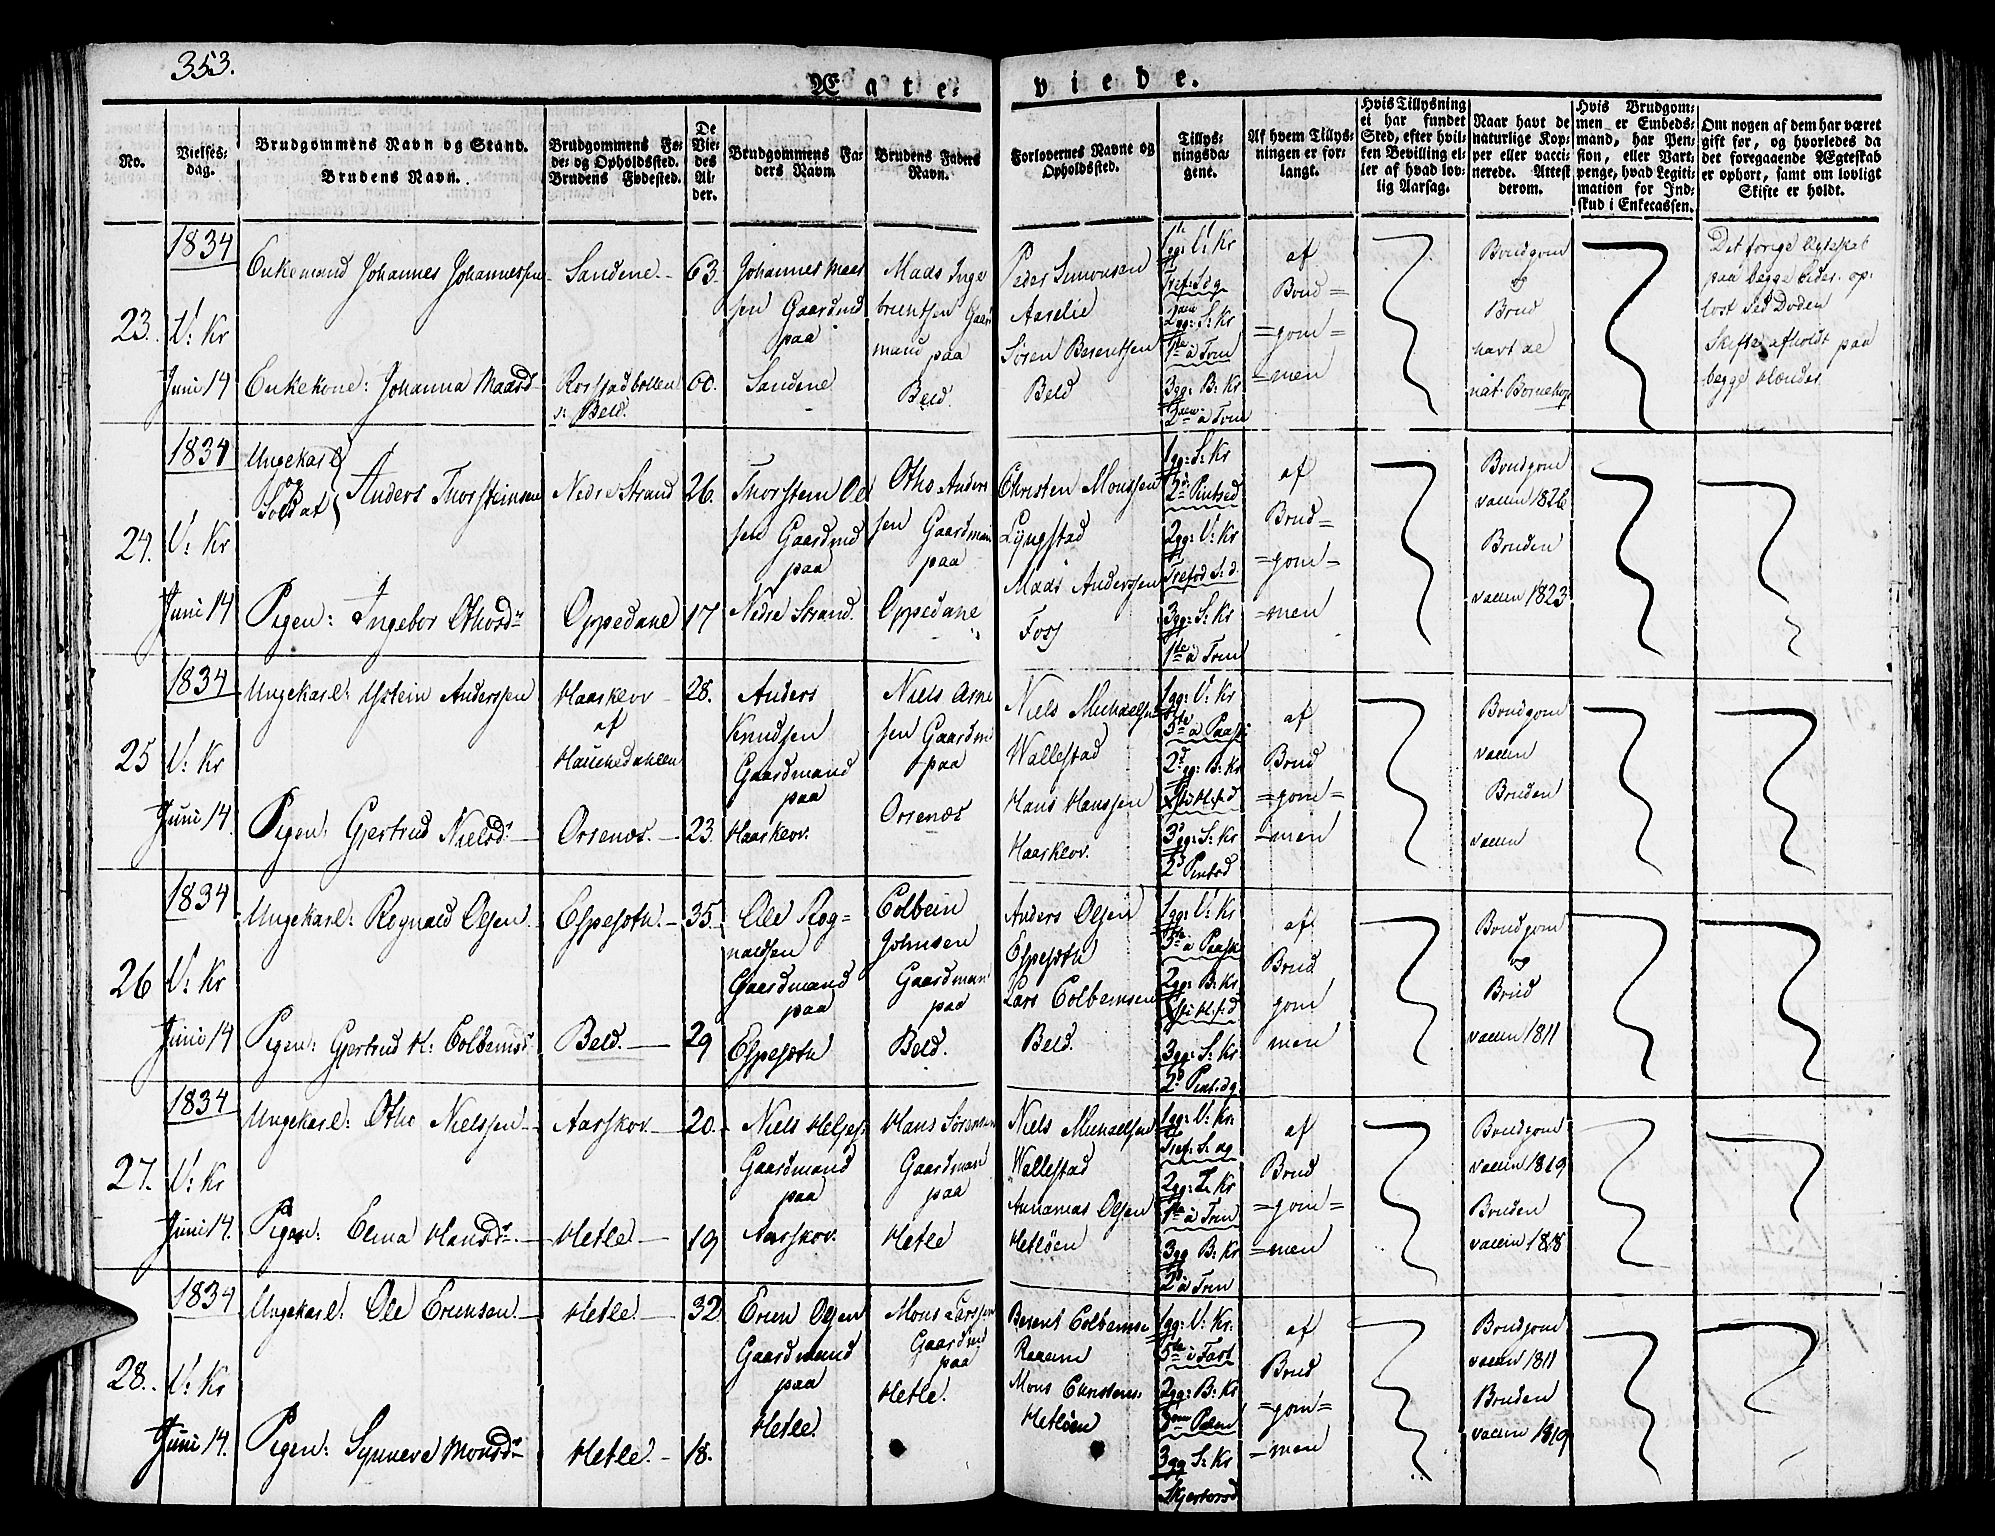 353.
Ægte-
viede.
No.
Vielses-
dag.
Brudgommens Navn og Stand.
Brudens Navn.
Brudgommens Fø-
de- og Opholdssted.
Brudens Fødested.
De
Vie-
des
Al-
der.
Brudgommens Fa-
ders Navn.
Brudens Faders
Navn.
Forlovernes Navne og
Opholdssted.
Tillys-
ningsda-
gene.
Af hvem Tillys-
ningen er for-
langt.
Hvis Tillysning
ei har fundet
Sted, efter hvil-
ken Bevilling el-
ler af hvad lov-
lig Aarsag.
Naar havt de
naturlige Kop-
per eller vacci-
nerede. Attest
derom.
Hvis Brudgom-
men er Embeds-
mand, har Pen-
sion, eller Vart-
penge, hvad Legiti-
mation for Ind-
skud i Enkecassen.
Om nogen af dem har været
gift før, og hvorledes da
det foregaaende Ægteskab
er ophørt, samt om lovligt
Skifte er holdt.
23.
1834
V: Kr
Juni 14
Enkemand Johannes Johannessen
Enkekone: Johanna Maasd
Sandene
Beld.
63.
60.
Johannes
sen Gaardmd
paa
Sandene
Mads Inge
brentsen Gaar
mand paa
Beld.
Peder Simonsen
Aarelie
Søren Berentsen
Beld
1gg: V: Kr
Tref: Søg
2gg: S: Kr
1te à Trin
3gg: B: Kr
à Trin
af
Brud=
=gom=
=men
Brudgom
og
Brud
havt de
nat. Bornekop
Det forige Egteskab
paa begge Sider op-
løst ved Døden
Skifte afholdt paa
begge
24.
1834
V: Kr
Juni 14
Ungekarl
og
Soldat
Anders Thorsteinsen
Pigen: Ingebor Othosdr
Nedre Strand
Oppedane
26.
17
Thorstein Ol
sen Gaardmd
paa
Nedre Strand.
Otho Anders
sen Gaardman
paa
Oppedane
Christen Monssen
Lyngstad
Mads Anderssen
Foss
1gg: S: Kr
2d Pintsed
2gg: V: Kr
Trefod S: d.
3gg: S: Kr
1te à Trin
af
Brud=
=gom=
=men
Brudgom
vaccin 1826
Bruden
vaccin 1823
25
1834
V: Kr
Juni 14.
Ungekarl: Ystein Anderssen
Pigen: Gjertrud Nielsdr
Haasklov
af
Hauckedahlen
Orsenos.
28.
23.
Anders
Knudsen
Gaardmand
paa
Haasklov.
Niels Arne
sen Gaardm
paa
Orsenos
Niels Michaelsen
Wallestad
Hans Hanssen
Haasklov.
1gg: V: Kr
5te à Paask
2d gg: B: Kr
3gg: S: Kr
2d Pintsd
af
Brud
=gom=
=men
Brudgom
vaccin
Bruden
vaccin
26
1834
V: Kr
Juni 14
Ungekarl: Rognald Olsen.
Pigen: Gjertrud M: Colbensd.
Espesetn.
Beld.
35.
29
Ole Rog=
naldsen
Gaardmand
paa
Espesetn
Colbein
Johnsen
Gaardman
paa
Beld.
Anders Olsen
Espesetn
Lars Colbensen
Beld.
1gg: V: Kr
5te à Paask
2gg: B: Kr
3gg: S: Kr
2d Pint:dg
af
Brud
gom
men
Brudgom
og
Brud
vaccin 1811
27.
1834
V: Kr
Juni 14.
Ungekarl: Otho Nielssen
Pigen: Elina Hansdr
Aarskov
Hetle
20.
19
Niels Helges
Gaardmand
paa
Aarskov.
Hans Sørensen
Gaardman
paa
Hetle
Niels Michaelsen
Wallestad
Annanias Olsen
Hetløen
1gg: V: Kr.
Tref: S: ag
2gg: L: Kr
1te à Trin
3gg B: Kr
2d à Trin
af
Brud
=gom=
=men
Brudgom
vaccin 1819
Bruden
vaccin 1818
28.
1834
V: Kr
Juni 14.
Ungekarl: Ole Ericnsen
Pigen: Synneve Monsdr
Hetle.
Hetle.
32
18.
Olsen
Gaardmand
paa
Hetle.
Mons Larssen
Gaardmd
paa
Hetle.
Berent Colbense
Mons Christens.
Hetløen
1gg: V: Kr.
5te i Fast
2gg: B: Kr
3gg S: Kr
Skjertorsd
af
Brud
=gom=
=men
Brudgom
vaccin 1811
Bruden
vaccin 1819